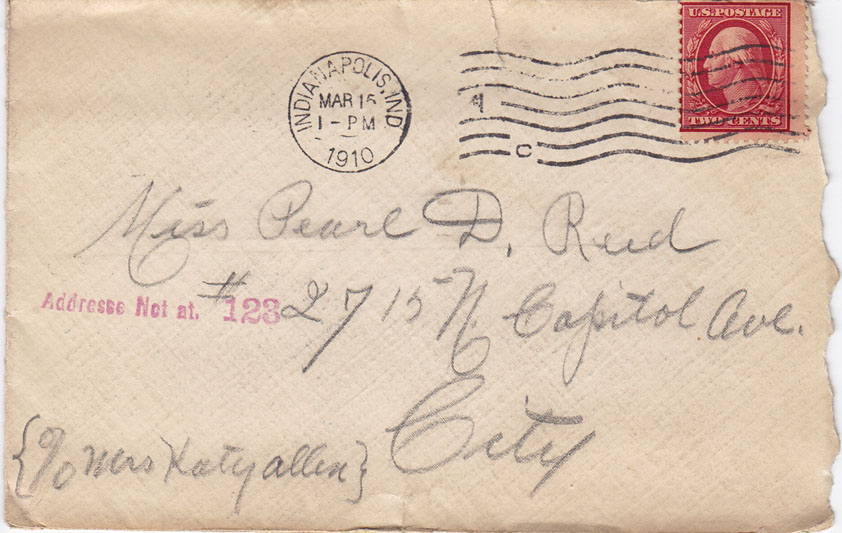 U.S. POSTAGE
TWO CENTS
INDIANAPOLIS, IND
MAR 15
1 - PM
1910
1
C
Miss Pearl D. Reed
# 2715 N. Capitol Ave.
Addresse Not at. 123
City
{c/o Mrs Katy allen}